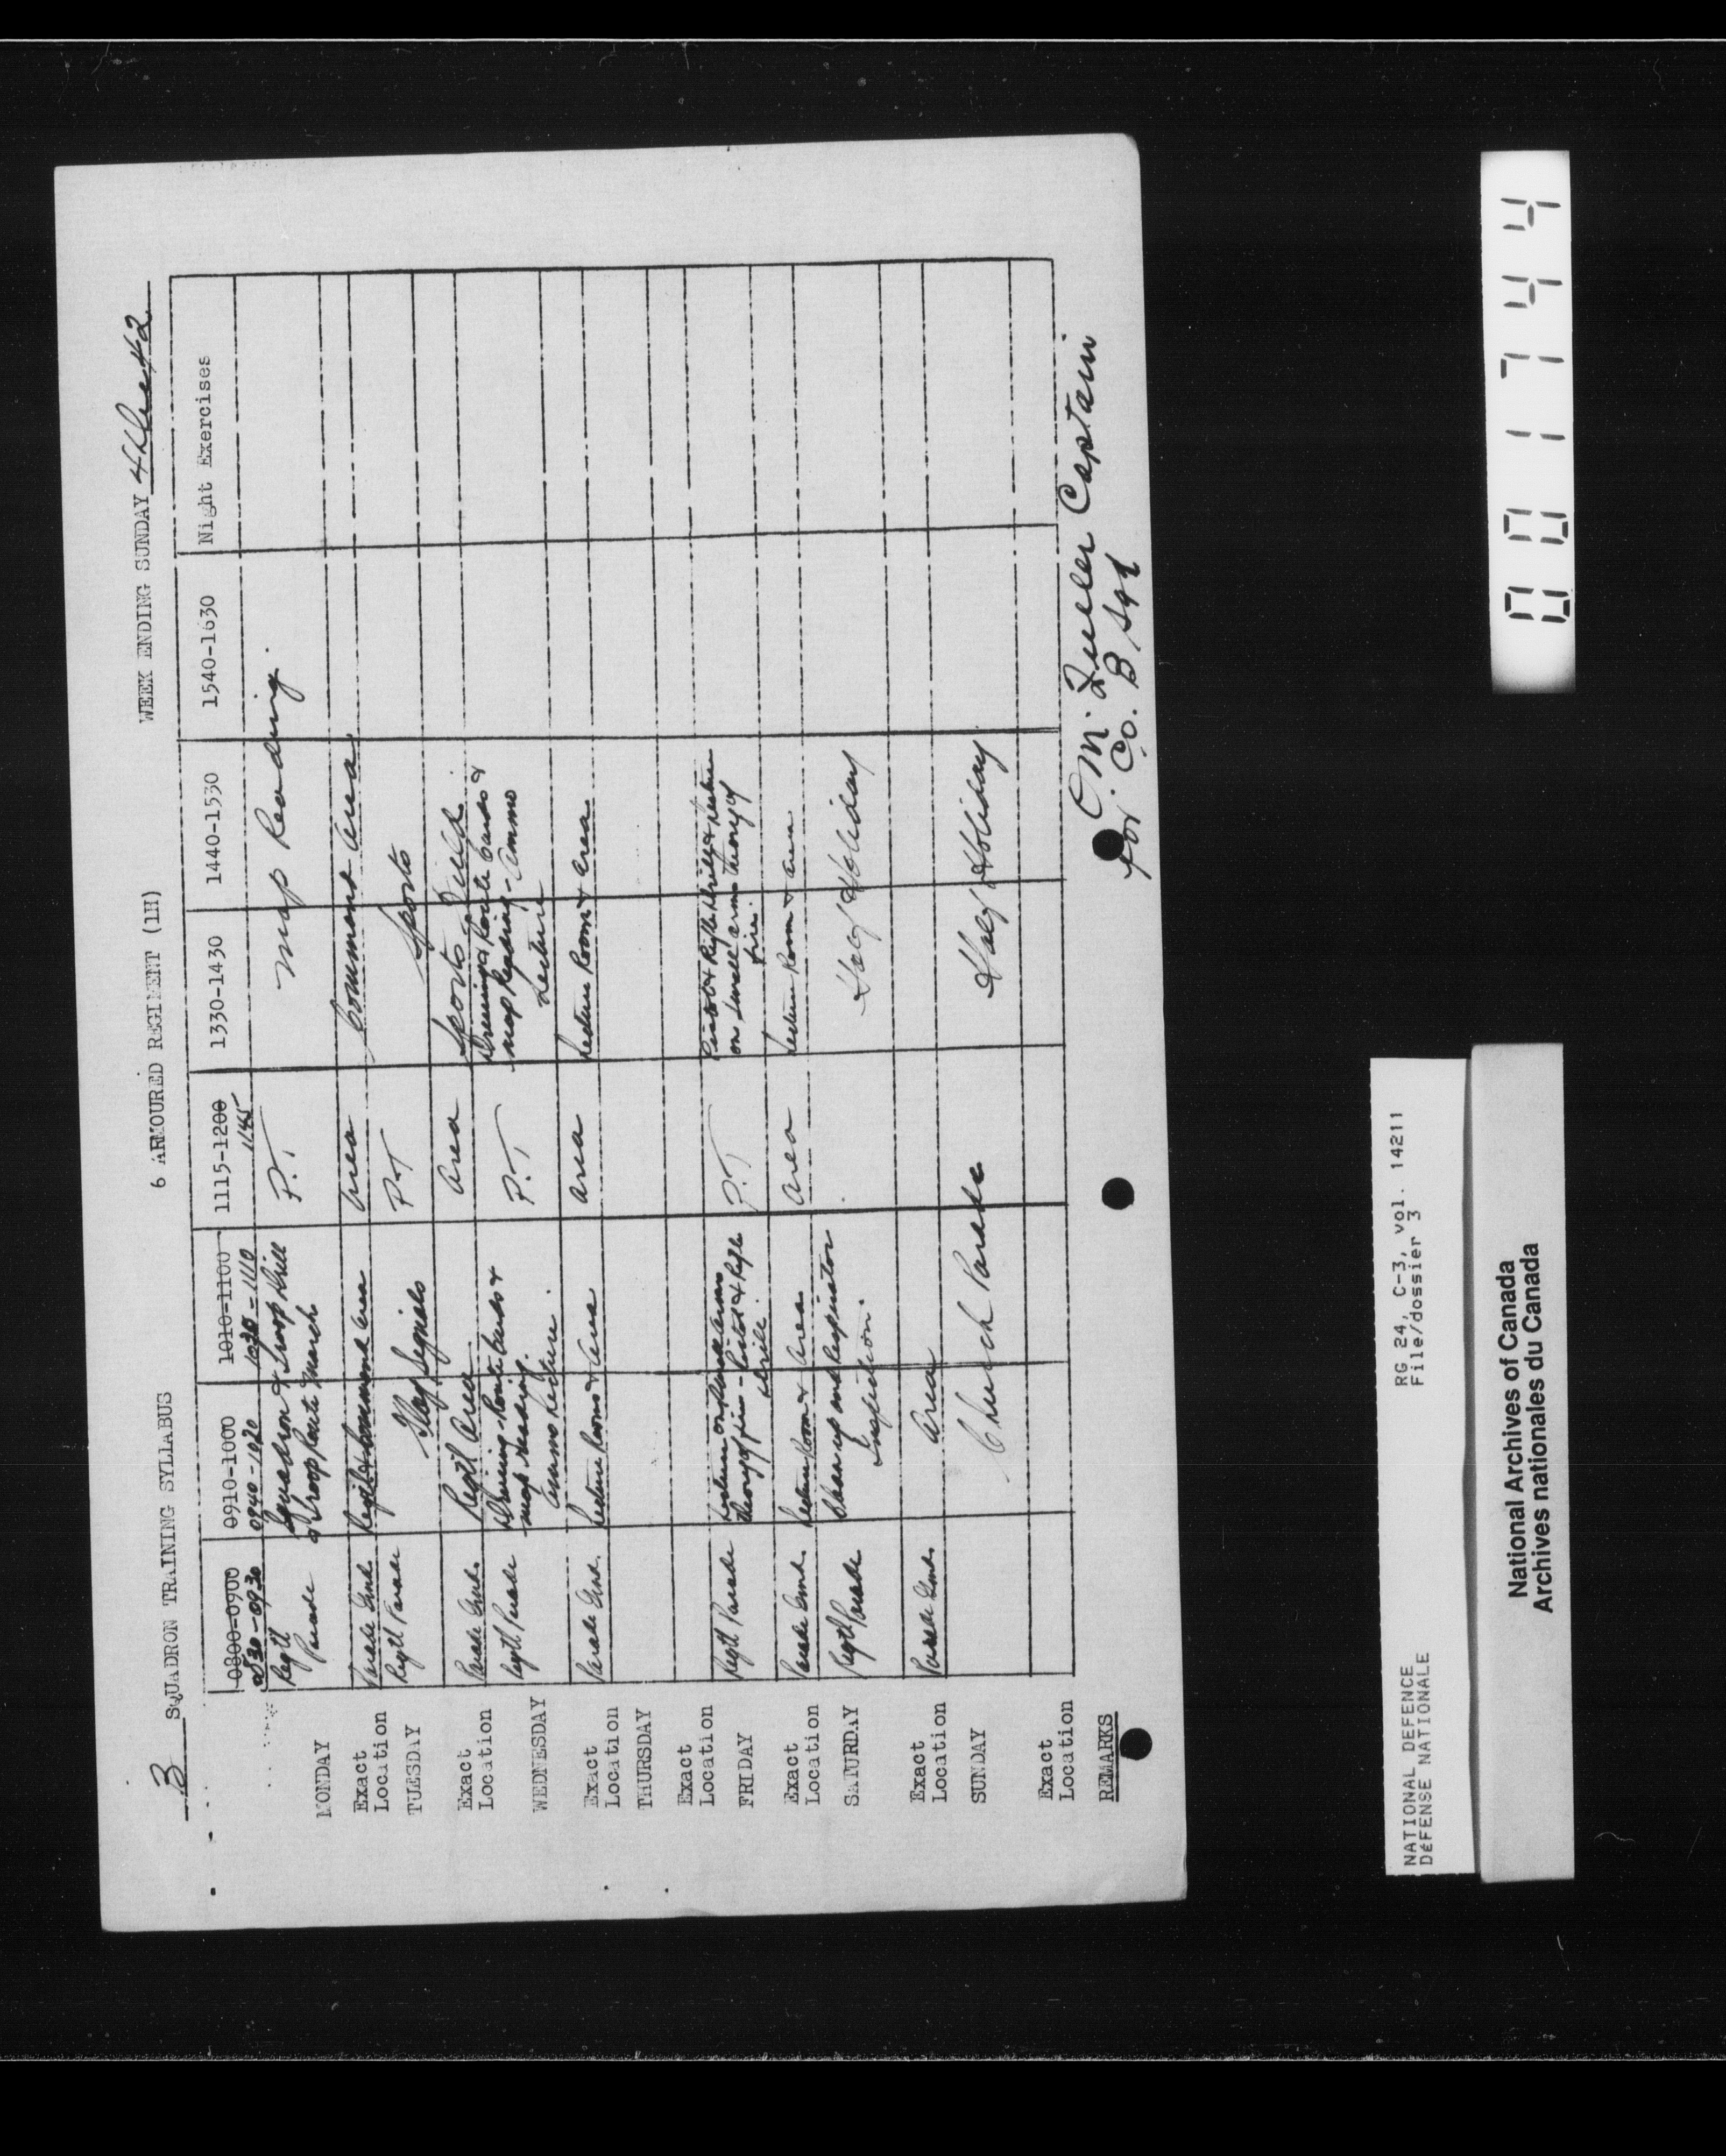 B SQUADRON TRAINING SYLLABUS 6 ARMOURED REGIMENT (1H) WEEK ENDING SUNDAY
0800-0900 0910-1000 1010-1100 1115-1200 1330-1430 1440-1530 1540-1630 Night Exercises
0830-0930 0940-1020 1030-1110 1145
MONDAY
Regtl Parade
Squadron & Troop Drill
& Troop Route March
P.T.
Map Reading.
Exact Location
Parade Grnd.
Regtl & Command Area
Area
Command Area
TUESDAY
Regtl Parade
Flag Signals
P.T
Sports
Exact Location
Parade Grnd.
Regtl Area
Area
Sports Field.
WEDNESDAY
Regtl Parade
Driving - Route Cards &
map reading.
Ammo Lecture.
P.T
Driving & Route Cards &
map Reading - Ammo
Lecture
Exact Location
Parade Grnd.
Lecture Room & Area
Area
Lecture Room & Area
THURSDAY
Exact Location
FRIDAY
Regtl Parade
Lecture on Small arms
theory of fire - Pistol & Rifle
drill.
P.T
Pistol & Rifle Drill & Lecture
on small arms theory of
fire.
Exact Location
Parade Grnd.
Lecture Room & Area
Area
Lecture Room & Area
SATURDAY
Regtl Parade
Clean up and Respirator
Inspection.
Half Holiday
Exact Location
Parade Grnd.
Area
SUNDAY
Church Parade
Half Holiday
Exact Location
REMARKS
O.M. Fuller Captain
for Co. B Sqd
0001744
NATIONAL DEFENCE RG 24, C-3, vol. 14211
DÉFENSE NATIONALE File/dossier 3
National Archives of Canada
Archives nationales du Canada